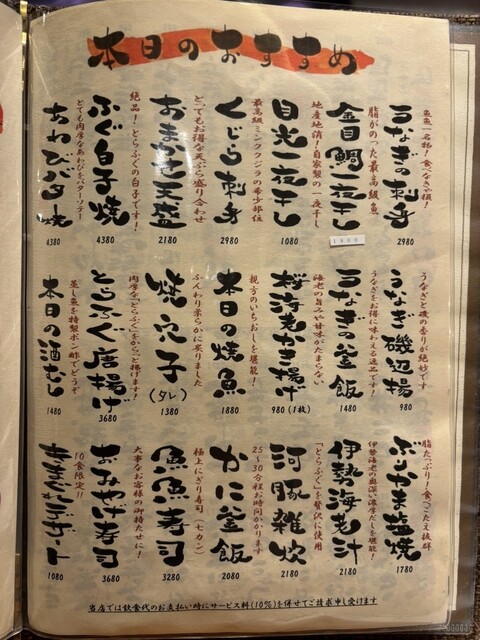 本日のおすすめ
魚魚一名物!食べなきゃ損!
うなぎの刺身
2980
脂がのった最高級魚
金目鯛一夜干し
1980
地産地消!自家製の一夜干し
目光一夜干し
1080
最高級ミンククジラの希少部位
くじら刺身
2980
どってもお得な天ぷら盛り合わせ
おまかせ天盛
2180
絶品!とらふぐの白子です!
ふぐ白子焼
4380
とても肉厚なあわびをバターソテー
あわびバター焼
4380
うなぎと磯の香りが絶妙です
うなぎ磯辺揚
980
うなぎをお得に味わえる逸品です!
うなぎの釜飯
1480
海老の旨みや甘味がたまらない
桜海老かき揚げ
980(1枚)
親方のいちおしを堪能!
本日の焼魚
1880
ふんわり柔らかに炙りました
焼穴子(タレ)
1380
肉厚な「とらふぐ」をからっと揚げます!
とらふぐ唐揚げ
3680
蒸し魚を特製ポン酢でどうぞ
本日の酒むし
1480
脂たっぷり!食べごたえ抜群
ぶりかま塩焼
1780
伊勢海老の奥深い濃厚だしを堪能!
伊勢海老汁
2180
「とらふぐ」を贅沢に使用
河豚雑炊
2180
25~30分程お時間かかります
かに釜飯
2080
極上にぎり寿司(七カン)
魚魚寿司
3280
大事なお客様の御持たせに!
おみやげ寿司
3680
10食限定!!
きまぐれデザート
1080
当店では飲食代のお支払い時にサービス料(10%)を併せてご請求申し受けます